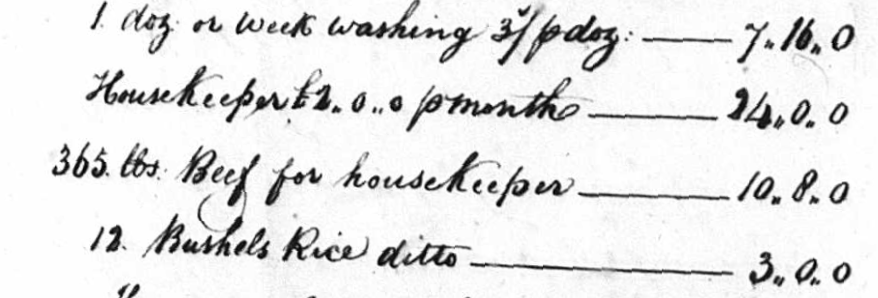 1. doz. or week washing 3/ p doz: — 7,, 16,, 0
Housekeeper £2,, 0,, 0 p month — 24,, 0,, 0
365 lbs. Beef for housekeeper — 10,, 8,, 0
12. Bushels Rice ditto — 3,, 0,, 0